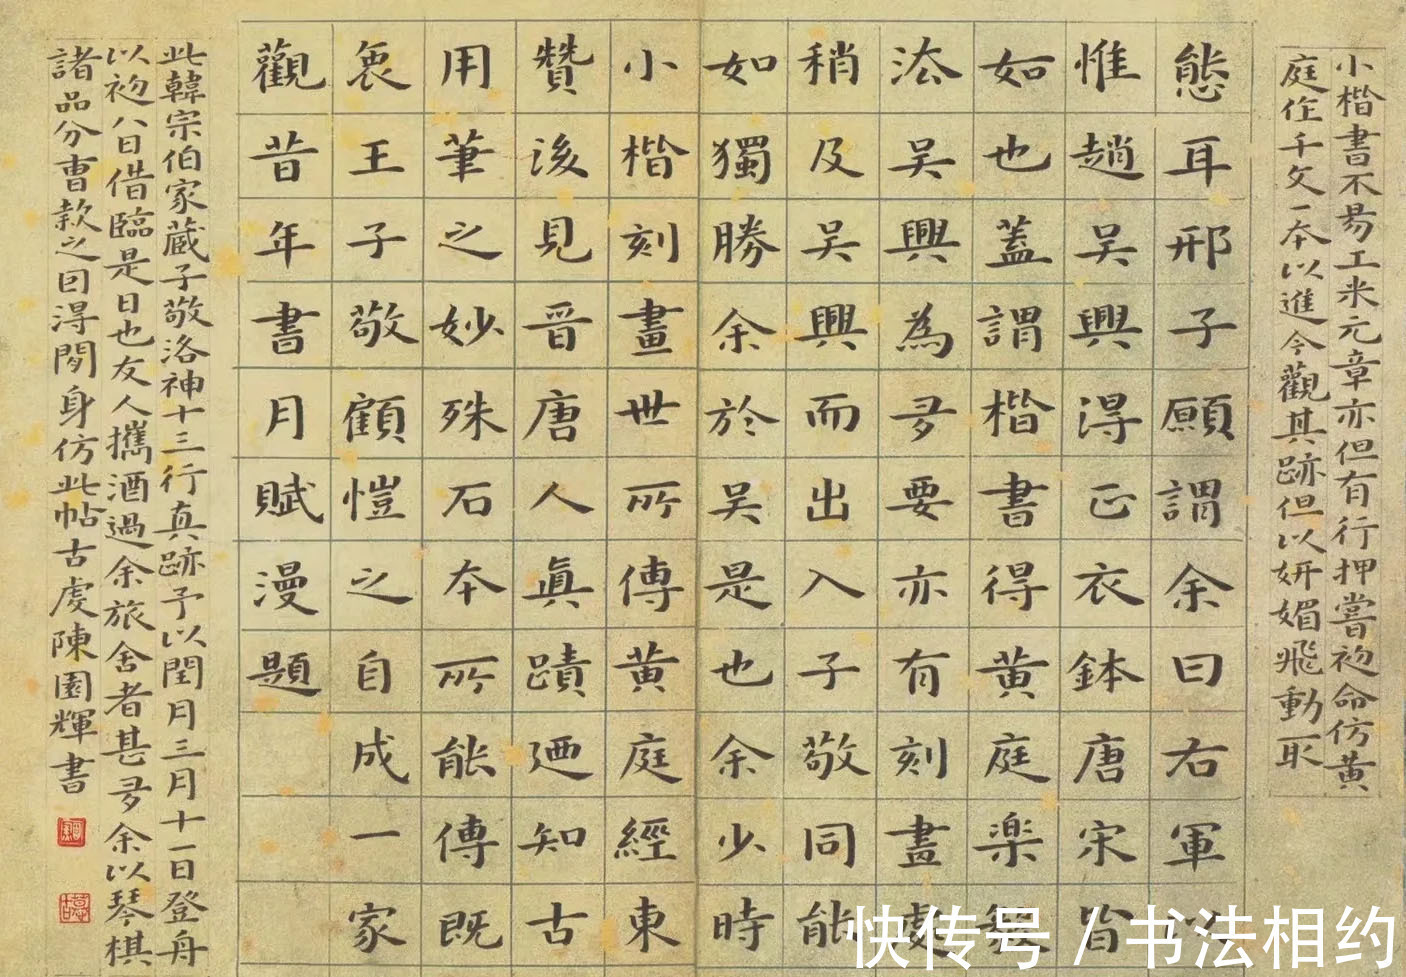 小楷書不易工米元章亦但有行押嘗初命仿黃
庭作千文一本以進今觀其跡但以妍媚飛動取
態耳邢子願謂余曰右軍以
惟趙吳興得正衣鉢唐宋皆
如也蓋謂楷書得黃庭樂毅
法吳興為多要亦有刻畫處
稍及吳興而出入子敬同能
如獨勝余於吳是也余少時
小楷刻畫世所傳黃庭經東
贊後見晉唐人真蹟迺知古
用筆之妙殊石本所能傳既
裒王子敬顧愷之自成一家
觀昔年書月賦漫題
此韓宗伯家藏子敬洛神十三行真跡予以閏月三月十一日登舟
以初八日借臨是日也友人攜酒過余旅舍者甚多余以琴棋
諸品分曹款之因得閒身仿此帖古虔陳園輝書
快传号/书法相约